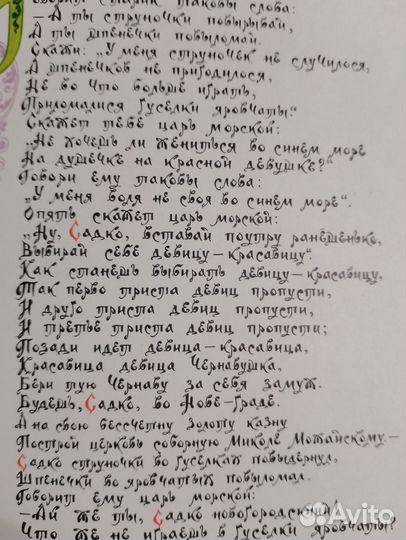 Говорит старик таковы слова:
— А ты струночки повырывай,
А ты шпенёчки повыломай.
Скажи: „У меня струночек не случилося,
А шпенёчков не пригодилося,
Не во что больше играть,
Приломалися гусёлки яровчаты."
Скажет тебе царь морской:
„Не хочешь ли жениться во синем море
На душечке на красной девушке?"
Говори ему таковы слова:
„У меня воля не своя во синем море".
Опять скажет царь морской:
„Ну, Садко, вставай поутру ранёшенько,
Выбирай себе девицу — красавицу".
Как станешь выбирать девицу — красавицу,
Так перво триста девиц пропусти,
И друго триста девиц пропусти,
И третье триста девиц пропусти;
Позади идёт девица — красавица,
Красавица девица Чернавушка,
Бери тую Чернаву за себя замуж.
Будешь, Садко, во Нове — граде.
А на свою бессчётну золоту казну
Построй церковь соборную Миколе Можайскому. —
Садко струночки во гуселках повыдернул,
Шпенёчки во яровчатых повыломал.
Говорит ему царь морской:
— Ай же ты, Садко новогородский!
Что же не играешь в гусёлки яровчаты?
Avito